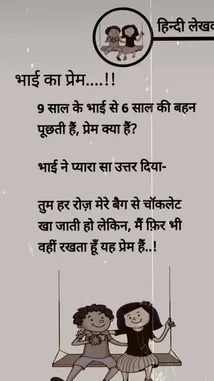 हिन्दी लेखक
भाई का प्रेम....!!
9 साल के भाई से 6 साल की बहन
पूछती हैं, प्रेम क्या हैं?
भाई ने प्यारा सा उत्तर दिया-
तुम हर रोज़ मेरे बैग से चॉकलेट
खा जाती हो लेकिन, मैं फ़िर भी
वहीं रखता हूँ यह प्रेम हैं..!